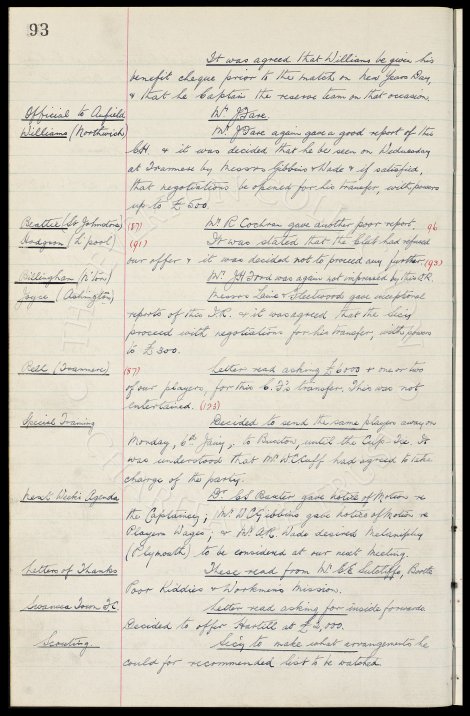 93
It was agreed that Williams be given his
benefit cheque prior to the match on New Years Day
& that he Captain the reserve team on that occasion.
Official to Anfield Mr J Fare
Williams (Northwich) Mr J Fare again gave a good report of this
C.H. & it was decided that he be seen on Wednesday
at Tranmere by Messrs Gibbins & Wade & if satisfied,
that negotiations be opened for his transfer, with powers
up to £500.
Beattie (St Johnstone) (87) Mr R Cochran gave another poor report. 96
Hodgson (L'pool) (91) It was stated that the Club had refused
our offer & it was decided not to proceed any further. (93)
Billingham (N'ton) Mr JH was again not impressed by this I.R.
Joyce (Ashington) Messrs Laine & Fleetwood gave exceptional
reports of this I.R. & it was agreed that the Sec'y
proceed with negotiations for his transfer, with powers
to £300.
Bell (Tranmere) (87) Letter read asking £6000 & one or two
of our players, for this C.F's transfer. This was not
entertained. (123)
Special Training Decided to send the same players away on
Monday, 6th Jan'y, to Buxton until the Cup-Tie. It
was understood that Mr WC Cuff had agreed to take
charge of the party.
Next Week's Agenda Dr CS Baxter gave notice of Motion re
the Captaincy; Mr WC Gibbins gave notice of Motion re
Players Wages; & Mr AR Wade desired
(Plymouth) to be considered at our next Meeting.
Letters of Thanks These read from Mr C E Sutcliffe, Bootle
Poor Kiddies & Workmen's Mission.
Swansea Town F.C. Letter read asking for inside forwards
Decided to offer Hartill at £2,000.
Scouting. Sec'y to make what arrangements he
could for recommended list to be watched.